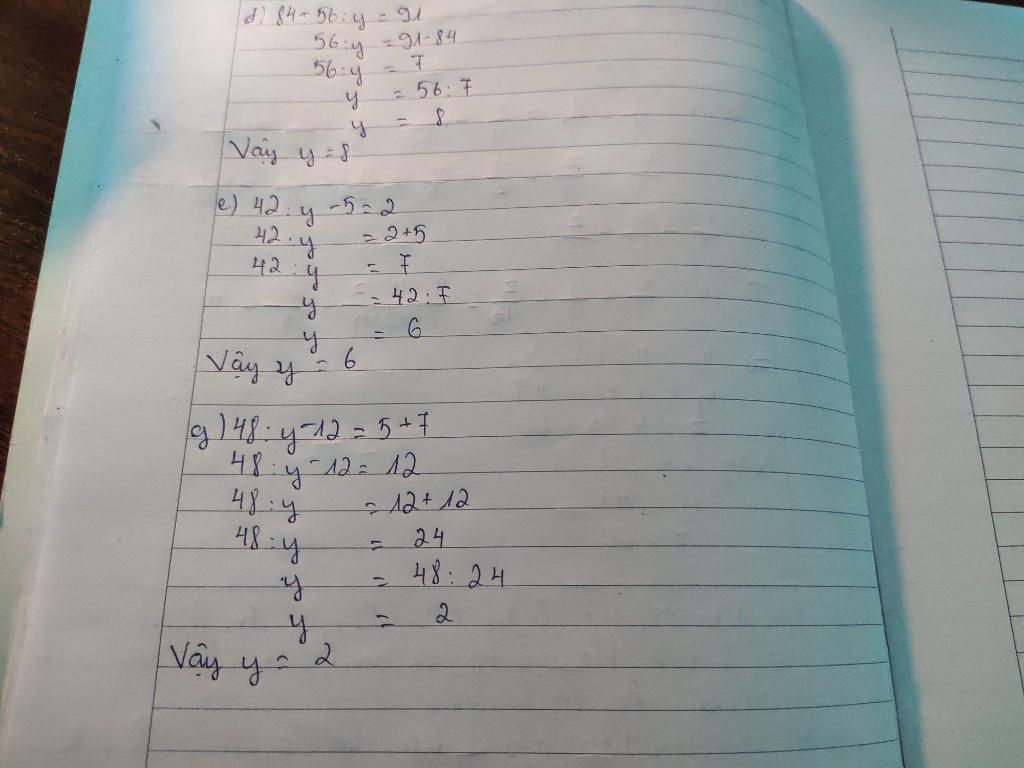 d) 84+56:y = 91
56:y = 91-84
56:y = 7
y = 56:7
y = 8
Vậy y=8
e) 42:y -5=2
42:y = 2+5
42:y = 7
y = 42:7
y = 6
Vậy y = 6
g) 48:y-12 = 5+7
48:y-12 = 12
48:y = 12+12
48:y = 24
y = 48:24
y = 2
Vậy y = 2